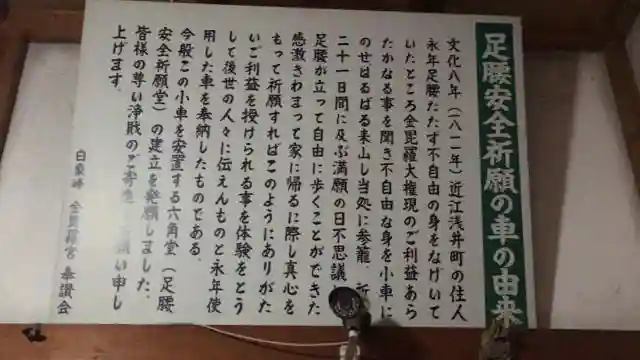 足腰安全祈願の車の由来
文化八年(一八一一年)近江浅井町の住人
永年足腰たたず不自由の身をなげいて
いたところ金毘羅大権現のご利益あら
たかなる事を聞き不自由な身を小車に
のせはるばる来山し当処に参籠、祈
二十一日間に及ぶ満願の日不思議
足腰が立って自由に歩くことができた
感激きわまって家に帰るに際し真心を
もって祈願すればこのようにありがた
いご利益を授けられる事を体験をとう
して後世の人々に伝えんものと永年使
用した車を奉納したものである。
今般この小車を安置する六角堂(足腰
安全祈願堂)の建立を発願しました。
皆様の尊い浄財のご寄進 願い申し
上げます。
白象峰 金毘羅宮 奉讃会